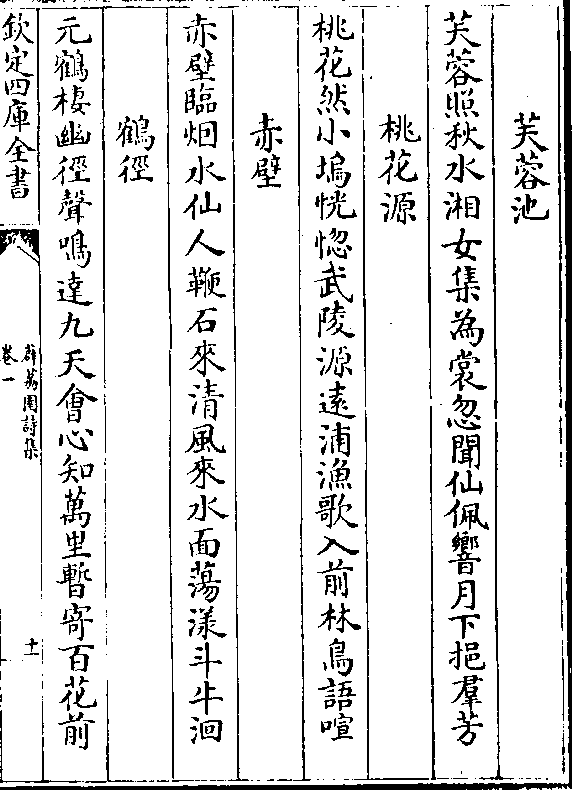 芙蓉池
芙蓉照秋水湘女集為裳忽聞仙佩響月下挹羣芳
桃花源
桃花然小塢恍惚武陵源遠浦漁歌入前林鳥語喧
赤壁
赤壁臨烟水仙人鞭石來清風來水面蕩漾斗牛洄
鶴徑
元鶴棲幽徑聲鳴達九天會心知萬里暫寄百花前
欽定四庫全書
薜荔園詩集
卷一
十一